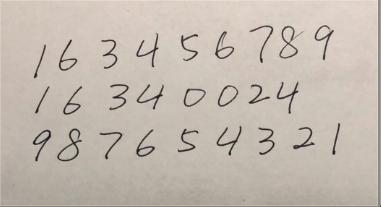 1 6 3 4 5 6 7 8 9
1 6 3 4 0 0 2 4
9 8 7 6 5 4 3 2 1